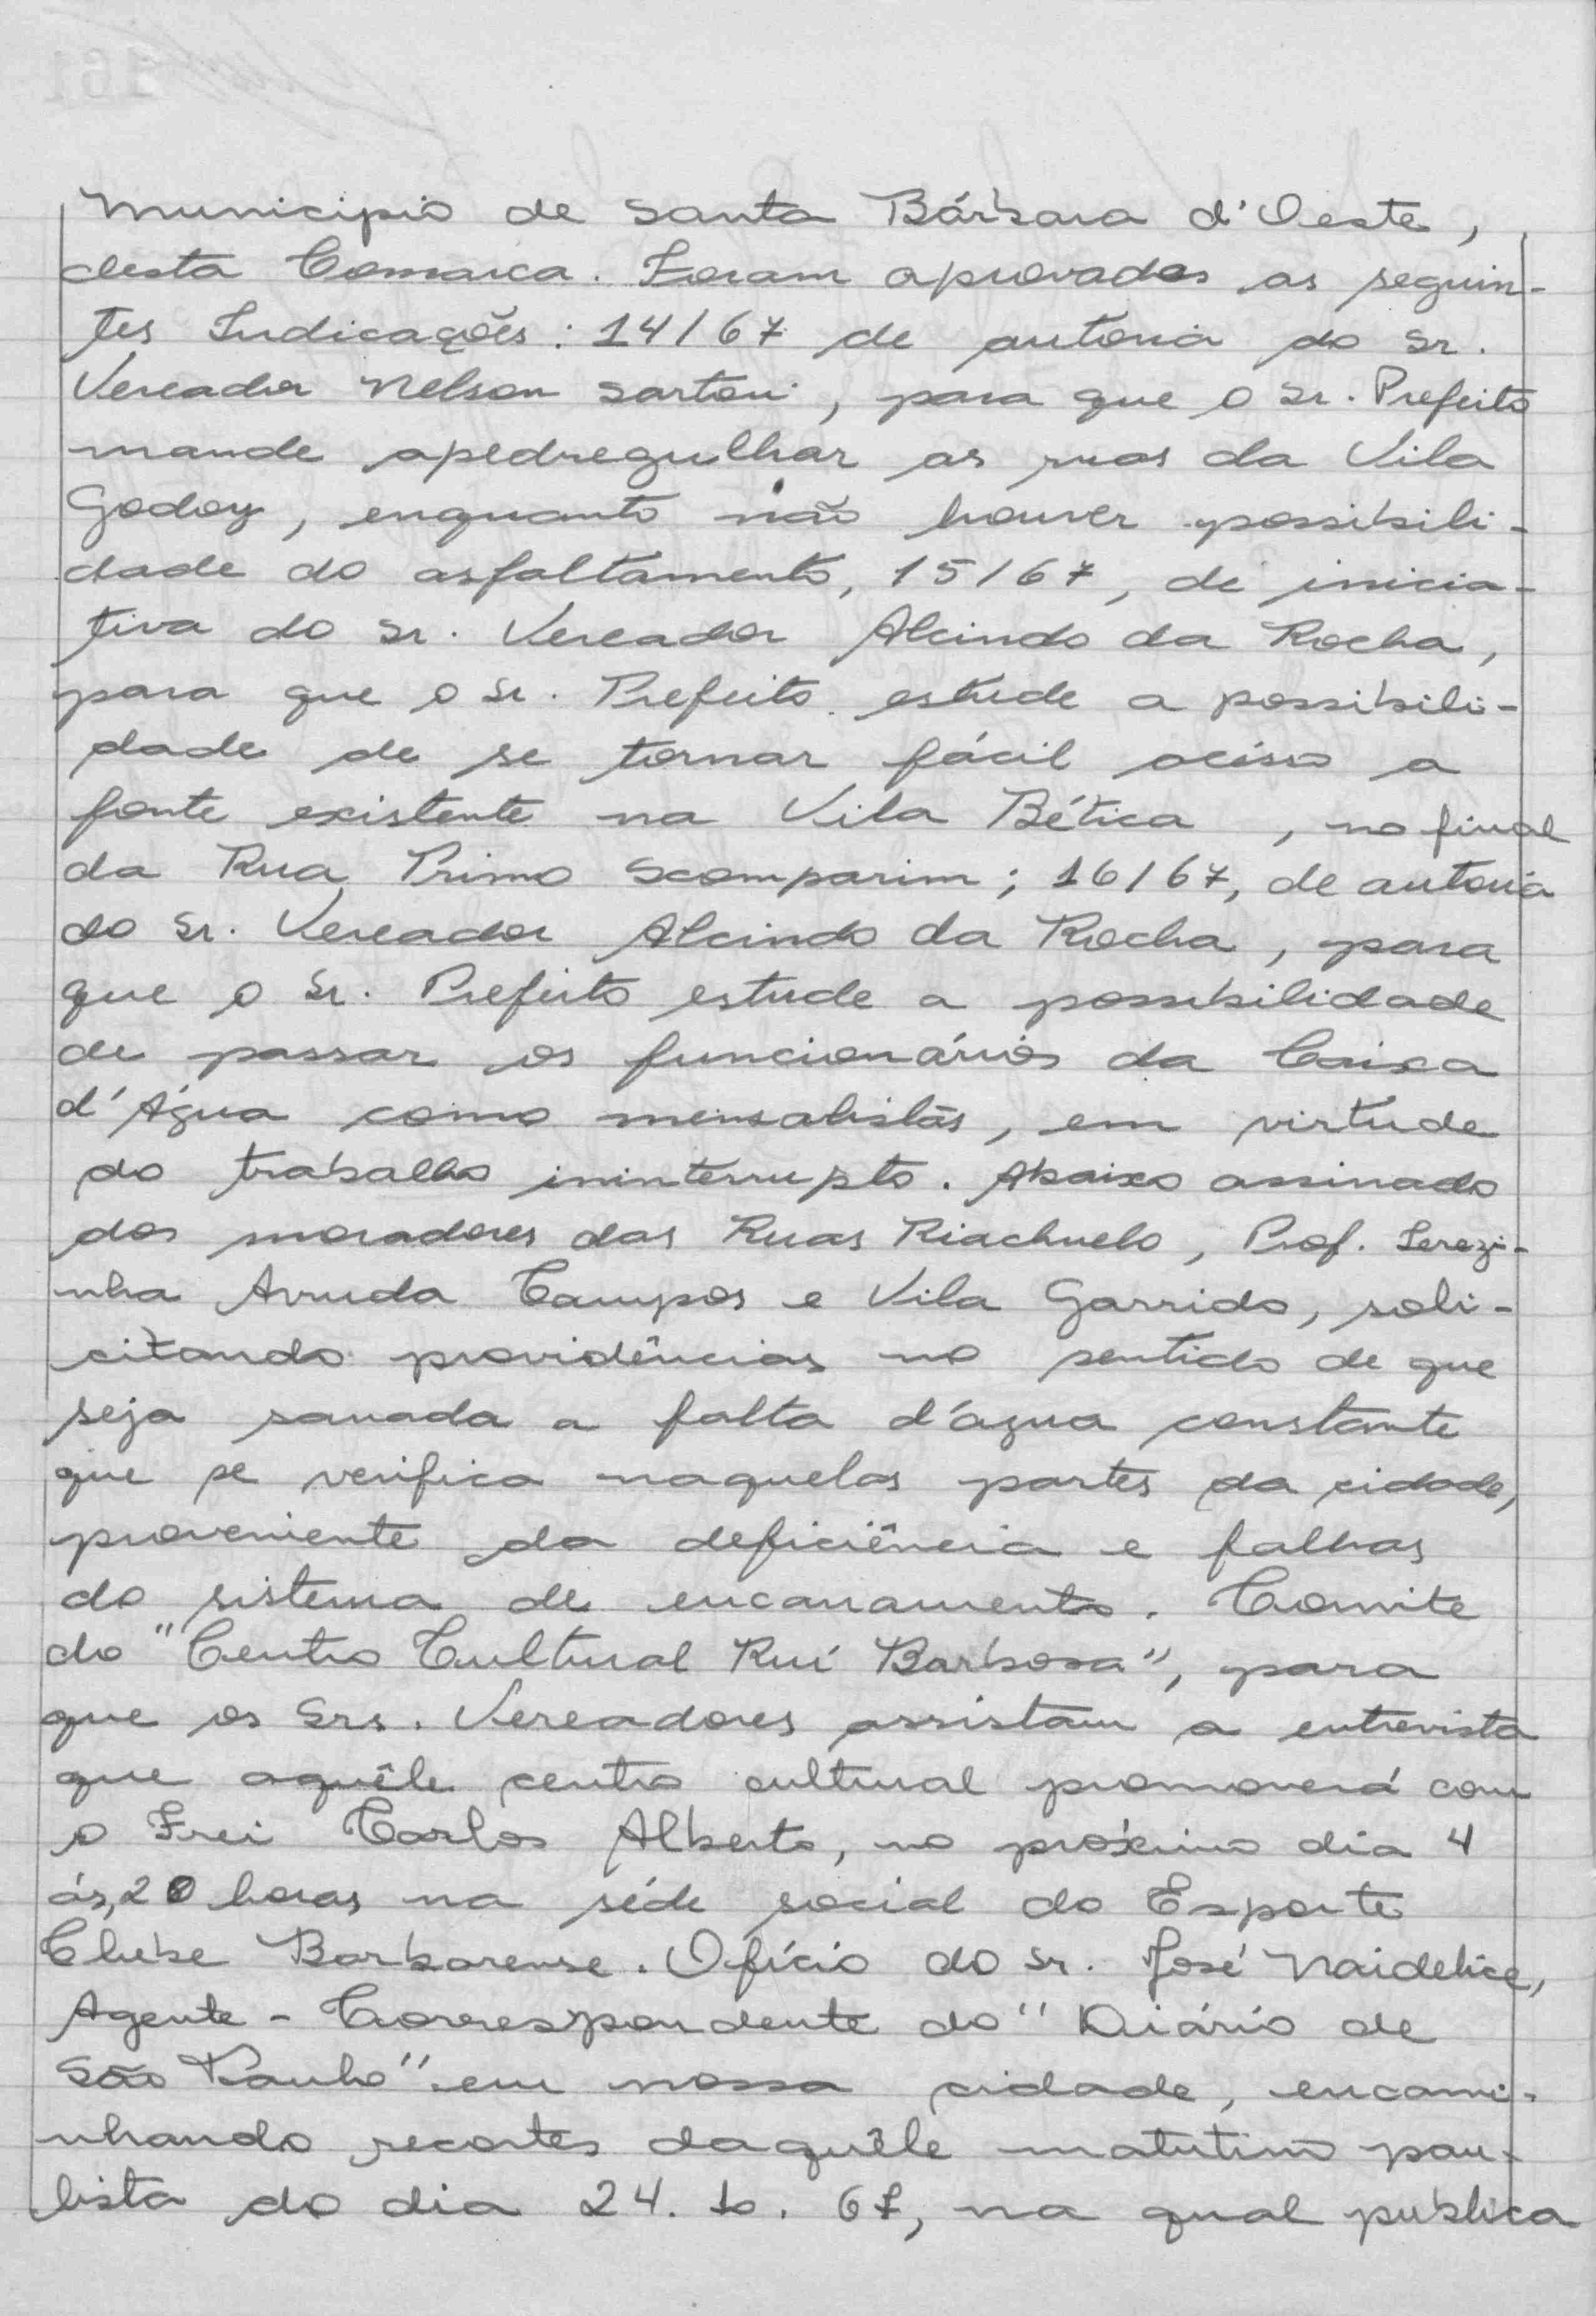 Municipio de Santa Bárbara d'Oeste,
desta Comarca. Foram aprovadas as seguin-
tes Indicações: 14/67 de autoria do Sr.
Vereador Nelson Sartori, para que o Sr. Prefeito
mande apedregulhar as ruas da Vila
Godoy, enquanto não houver possibili-
dade do asfaltamento, 15/67, de inicia-
tiva do Sr. Vereador Alcindo da Rocha,
para que o Sr. Prefeito estude a possibili-
dade de se tornar fácil acisso a
fonte existente na Vila Bética, no final
da Rua Primo Scomparim; 16/67, de autoria
do Sr. Vereador Alcindo da Rocha, para
que o Sr. Prefeito estude a possibilidade
de passar os funcionários da Caixa
d'Água como mensalistas, em virtude
do trabalho ininterrupto. Abaixo assinado
dos moradores das Ruas Riachuelo, Prof. Terezi-
nha Arruda Campos e Vila Garrido, soli-
citando providências no sentido de que
seja sanada a falta d'água constante
que se verifica naquelas partes da cidade,
proveniente da deficiência e falhas
do sistema de encanamento. Convite
do "Centro Cultural Rui Barbosa", para
que os Srs. Vereadores assistam a entrevista
que aquêle centro cultural promoverá com
o Frei Carlos Alberto, no próximo dia 4
ás, 20 horas na séde social do Esporte
Clube Barbarense. Ofício do Sr. José Naidelice,
Agente-Correspondente do "Diário de
São Paulo" em nossa cidade, encami-
nhando recortes daquêle matutino pau-
lista do dia 24. 10. 67, na qual publica